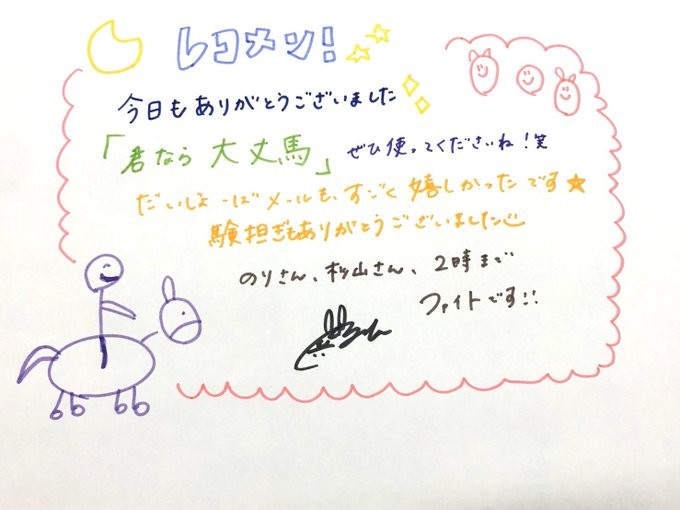 レコメン!
今日もありがとうございました
「君なら大丈馬」 ぜひ使ってくださいね!笑
だいじょーばメールも、すごく嬉しかったです★
験担ぎもありがとうございました
のりさん、杉山さん、2時まで
ファイトです!!